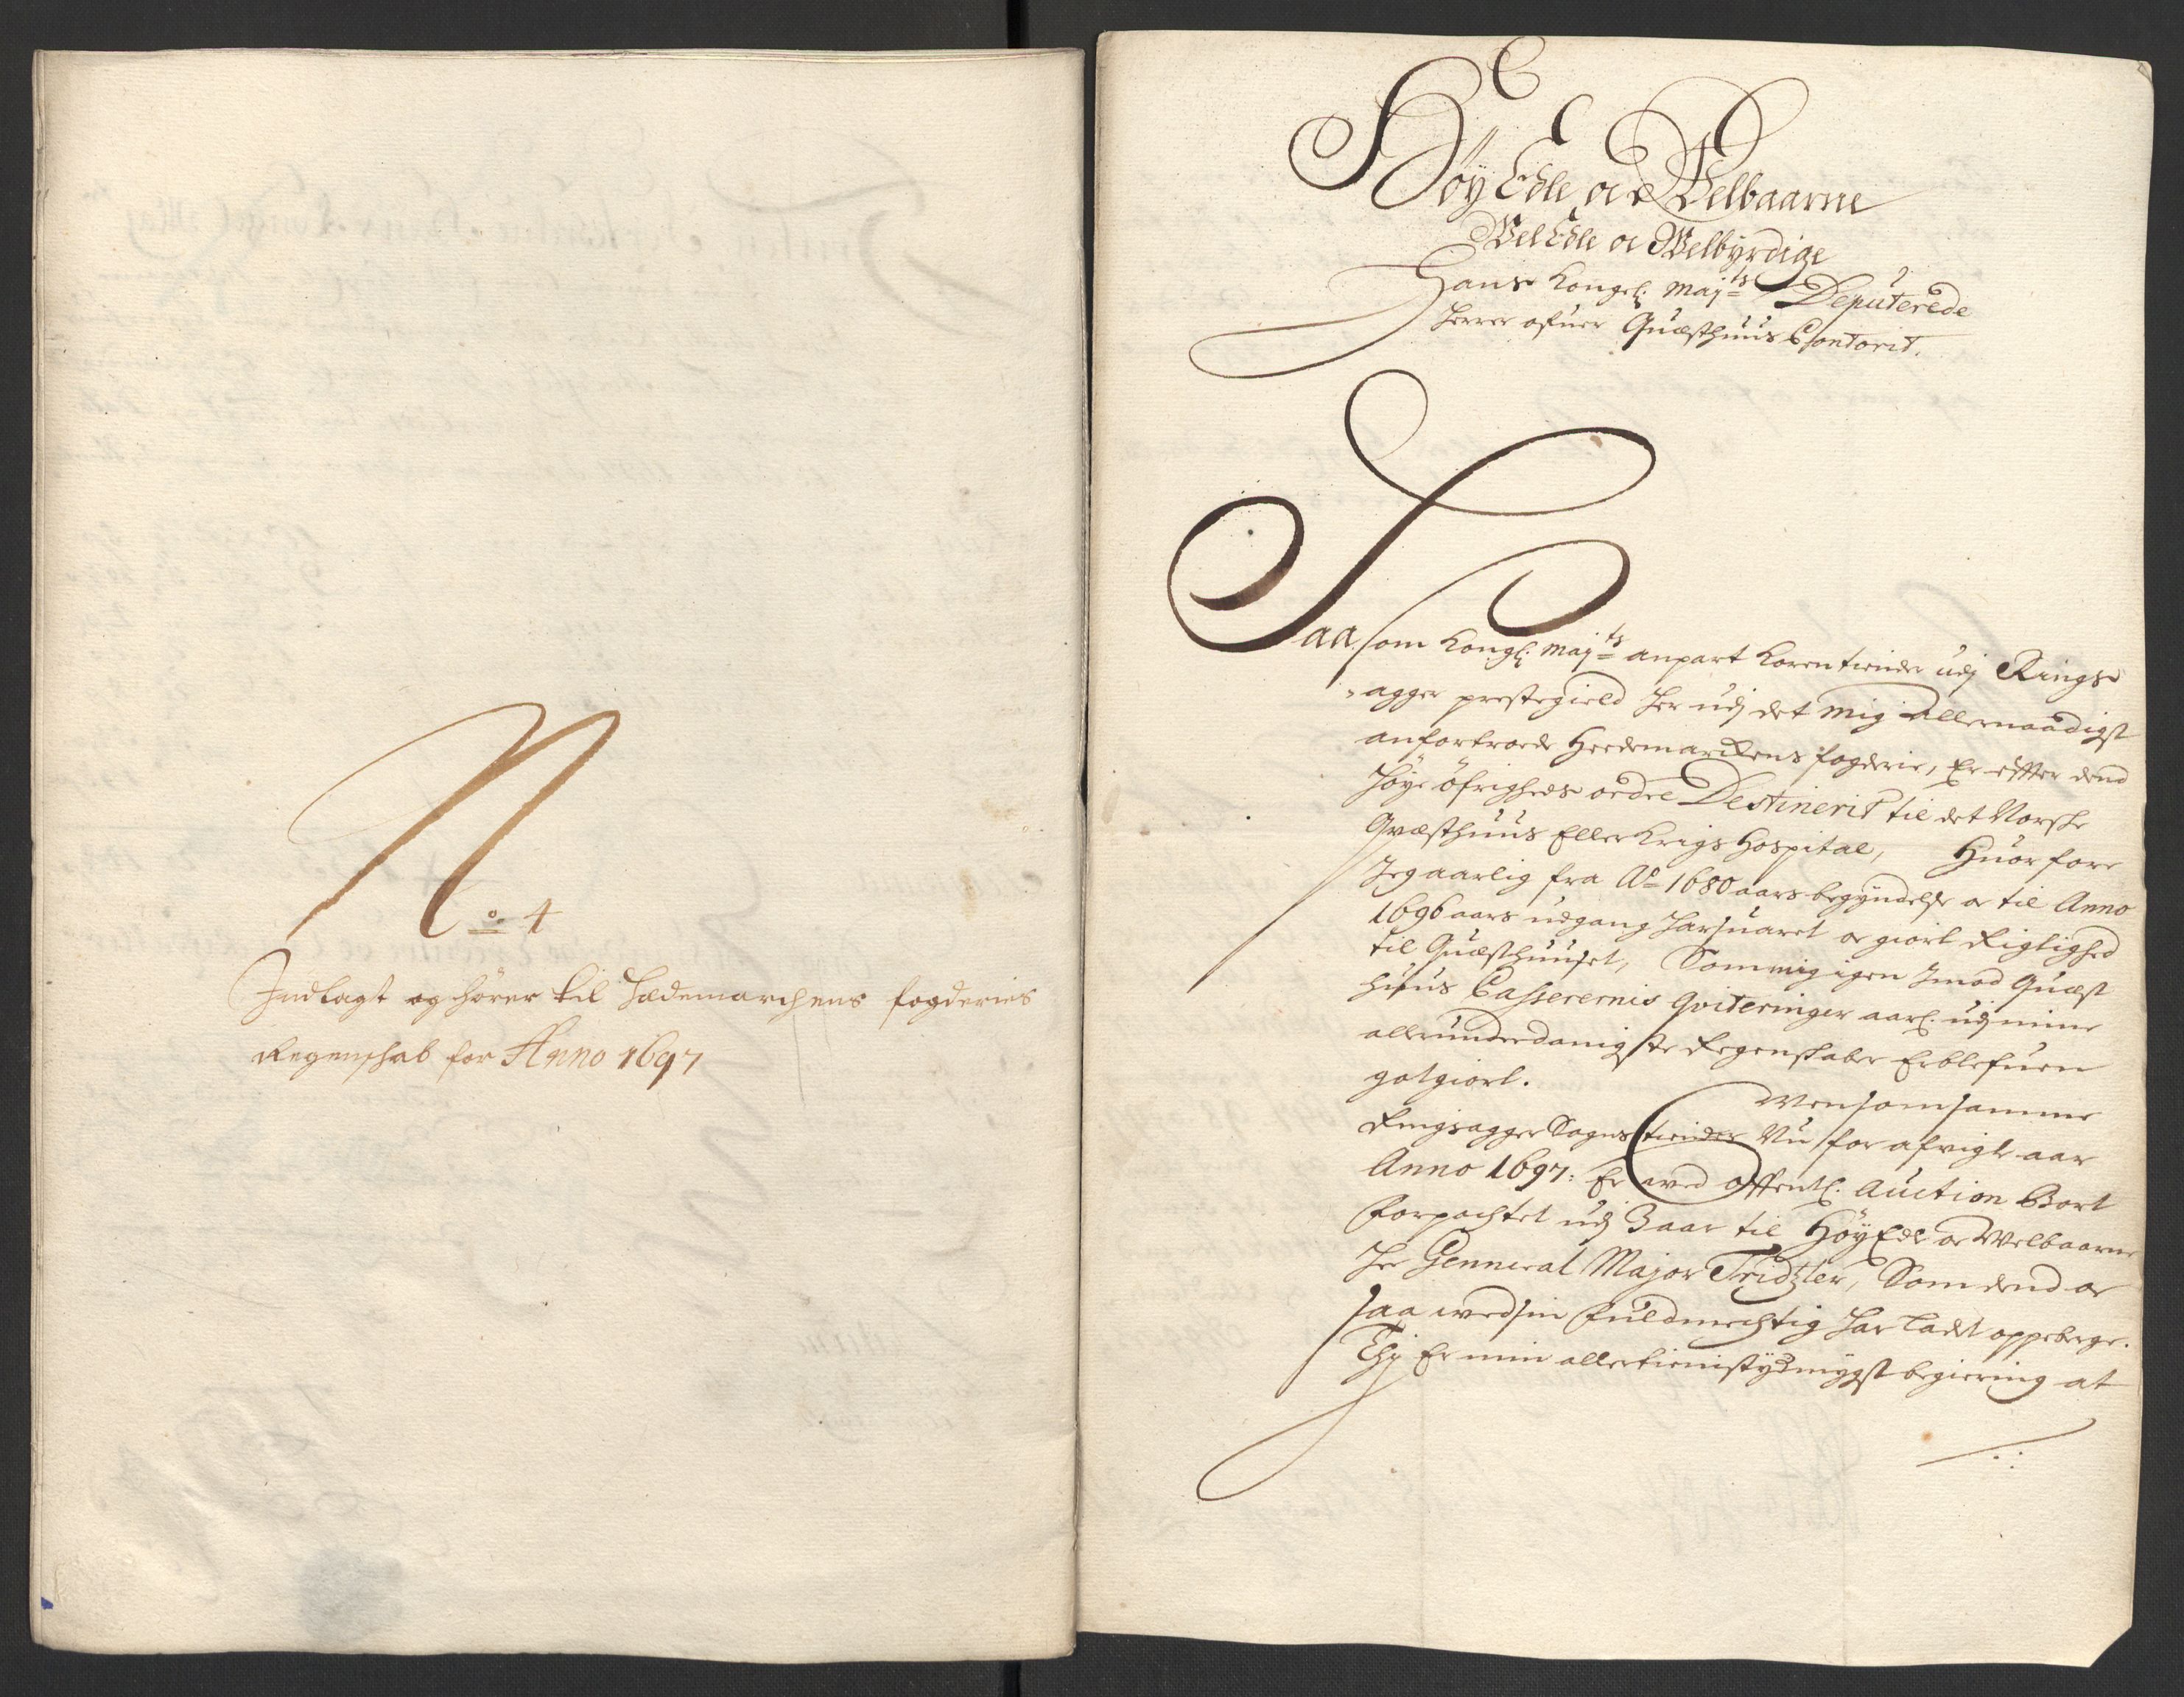 No 4
Indlagt og hører til Hedemarchens fogderies
Regenschab for Anno 1697
Høy Edle oc Welbaarne
Wel Edle oc Welbyrdige
Hans Kongel: Maj:ts Deputerede
Herrer ofuer Quæsthuus Contorit.
Saa som Kongl: Maj:ts anpart Korentiender udj Rings-
agger prestegield her udj det mig allernaadigst
anfortroede Heedemarckens fogderie, Er effter dend
høye øfrigheds ordre Destinerit til det Norske
Qvæsthuus Eller Krigs Hospital, Huorfore
Jeg aarlig fra Ao 1680 aars begyndelse oc til Anno
1696 aars udgang har suaret oc giort Rigtighed
til Quæsthuuset, Som mig igen Imod Quæst
huus Casserernis Qviteringer aarl. udj mine
allerunderdanigste Regenskaber Er blefuen
gotgiort.
Men som samme
Ringsagger Sogns tiender Nu for afvigte aar
Anno 1697: Er wed offentl. Auction Bort
forpachtet udj 3 aar til Høy Edle oc Welbaarne
Her Genneral Major Tridzler, Som dend oc
saa wed sin fuldmechtig har ladet oppeberge.
Thj Er min allertienistydmygst begiering at